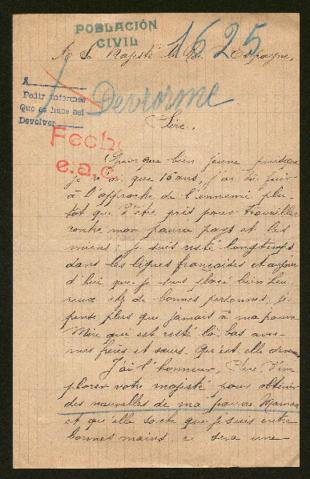 POBLACIÓN
CIVIL
1625
A Sa Majesté le Roi Espagne,
A
Pedir informes
Que se hace así
Devolver
Devrorme
Sire,
Fecha
e.a.c
Quoique bien jeune puisque
je n'ai que 16 ans j'ai dû fuir
à l'approche de l'ennemi plu
tôt que d'être pris pour travailler
contre mon pauvre pays et les
miens je suis resté longtemps
dans les lignes françaises et aujour
d'hui que je suis placé bien heu
reux chez de bonnes personnes, je
pense plus que jamait à ma pauvre
Mère qui est resté là bas avec
mes frères et sœurs. Qu'est elle devenue
J'ai l'honneur, Sire, d'im
plorer votre majesté pour obtenir
des nouvelles de ma pauvre Maman
et qu'elle sache que je suis entre
bonnes mains, ce sera une